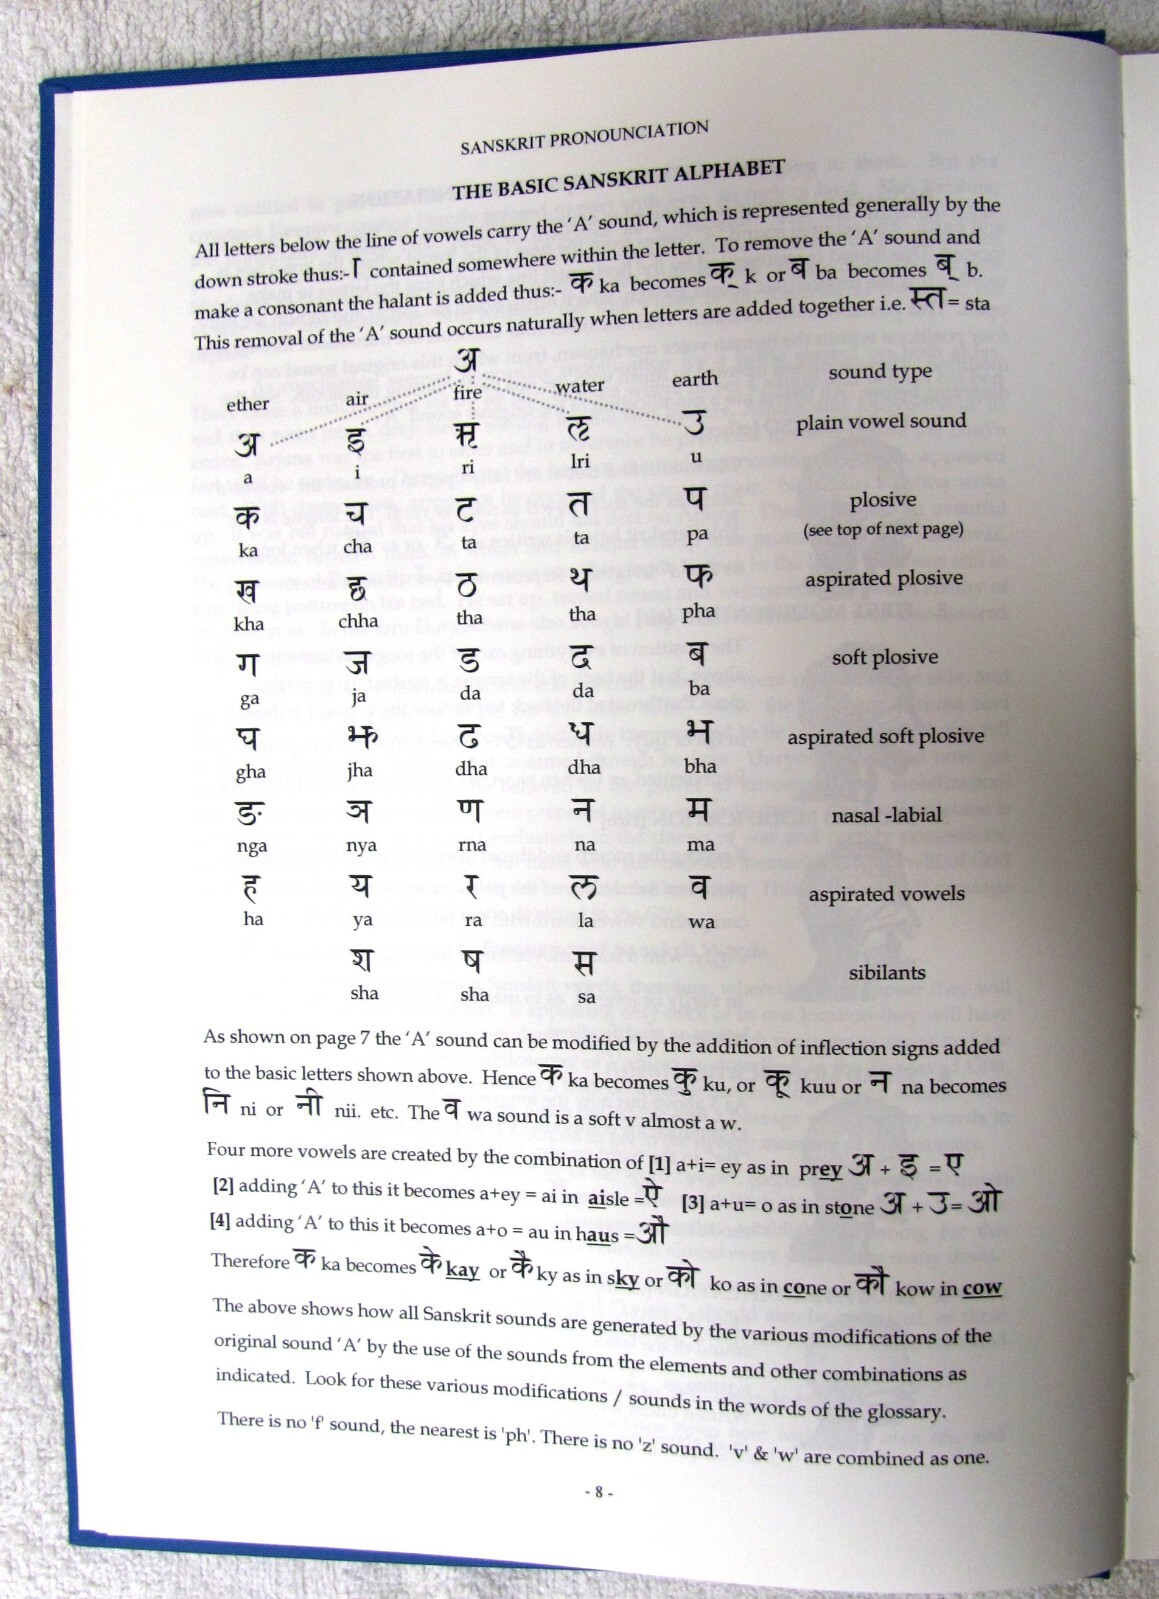 SANSKRIT PRONOUNCIATION
THE BASIC SANSKRIT ALPHABET
All letters below the line of vowels carry the 'A' sound, which is represented generally by the
down stroke thus:- ा contained somewhere within the letter. To remove the 'A' sound and
make a consonant the halant is added thus:- क ka becomes क् k or ब ba becomes ब् b.
This removal of the 'A' sound occurs naturally when letters are added together i.e. स्त = sta
अ
ether air fire water earth sound type
अ इ ऋ ऌ उ plain vowel sound
a i ri lri u
क च ट त प plosive
ka cha ta ta pa (see top of next page)
ख छ ठ थ फ aspirated plosive
kha chha tha tha pha
ग ज ड द ब soft plosive
ga ja da da ba
घ झ ढ ध भ aspirated soft plosive
gha jha dha dha bha
ङ ञ ण न म nasal -labial
nga nya rna na ma
ह य र ल व aspirated vowels
ha ya ra la wa
श ष स sibilants
sha sha sa
As shown on page 7 the 'A' sound can be modified by the addition of inflection signs added
to the basic letters shown above. Hence क ka becomes कु ku, or कू kuu or न na becomes
नि ni or नी nii. etc. The व wa sound is a soft v almost a w.
Four more vowels are created by the combination of [1] a+i= ey as in prey अ + इ = ए
[2] adding 'A' to this it becomes a+ey = ai in aisle = ऐ [3] a+u= o as in stone अ + उ = ओ
[4] adding 'A' to this it becomes a+o = au in haus = औ
Therefore क ka becomes के kay or कै ky as in sky or को ko as in cone or कौ kow in cow
The above shows how all Sanskrit sounds are generated by the various modifications of the
original sound 'A' by the use of the sounds from the elements and other combinations as
indicated. Look for these various modifications / sounds in the words of the glossary.
There is no 'f' sound, the nearest is 'ph'. There is no 'z' sound. 'v' & 'w' are combined as one.
- 8 -